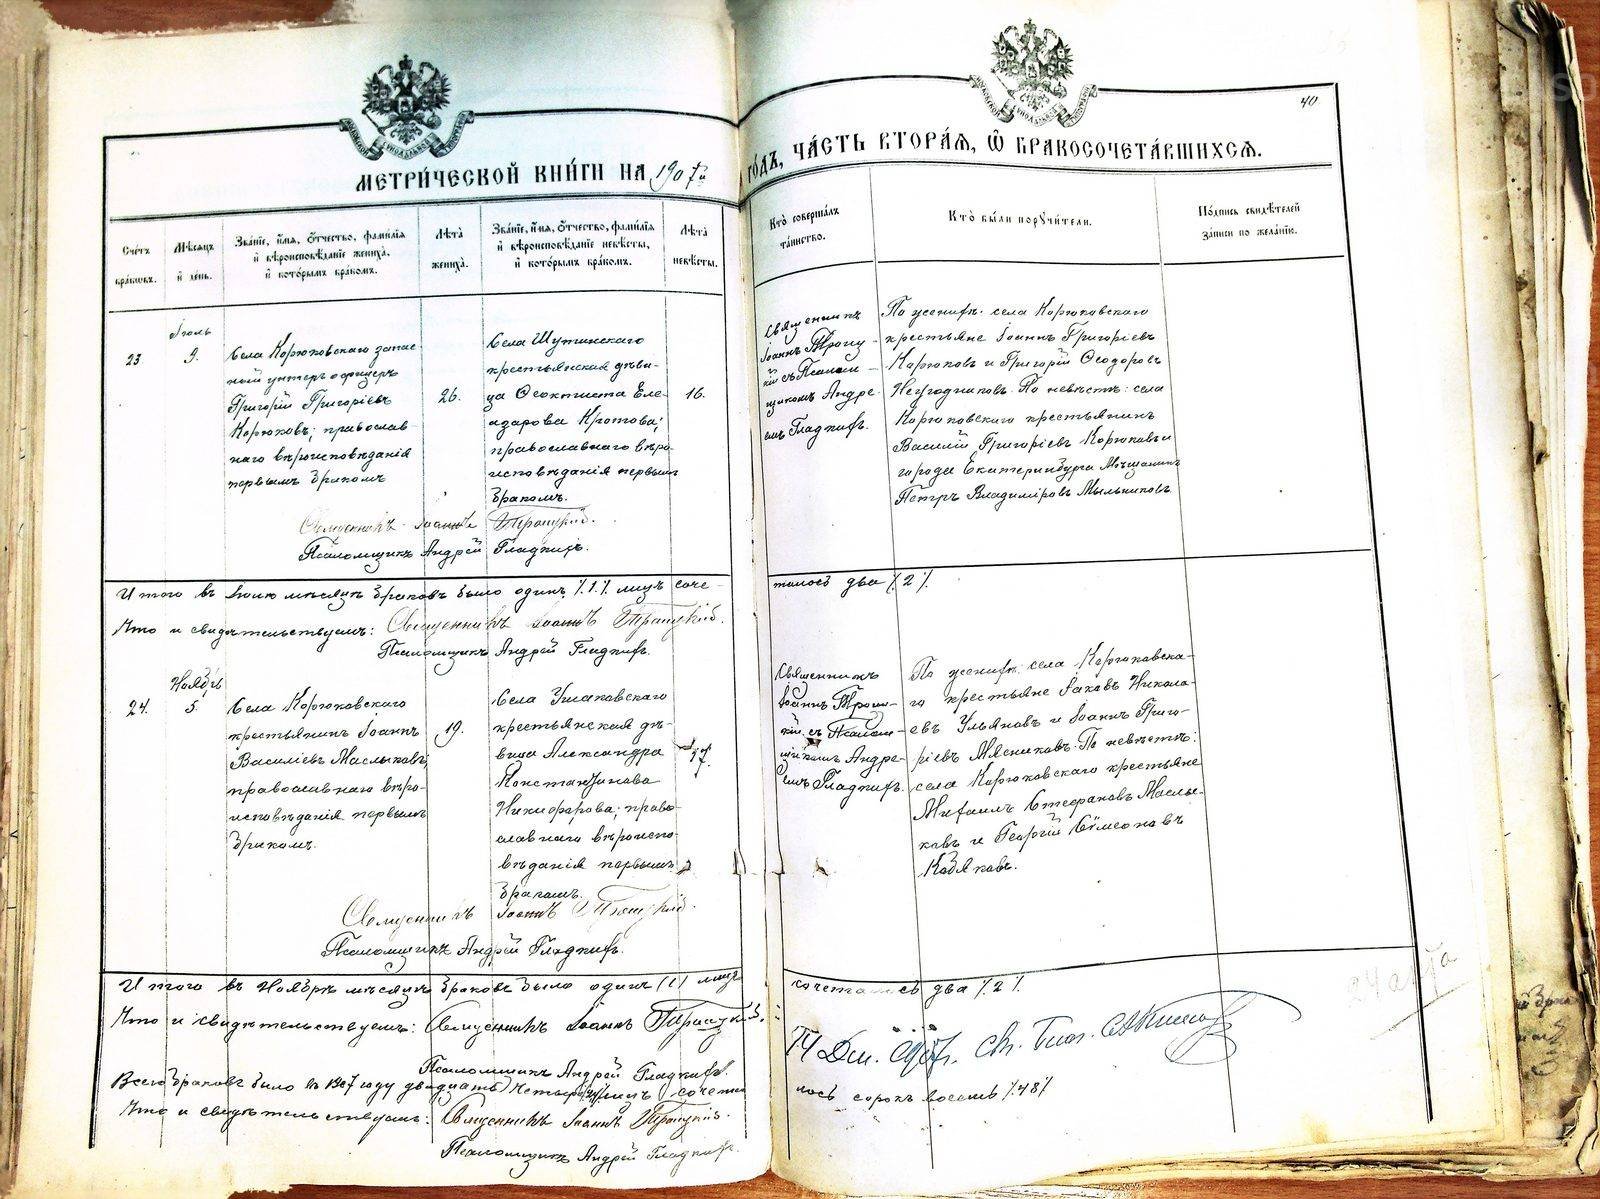 40
МЕТРИ́ЧЕСКОЙ КНИ́ГИ НА 1907й ГО́ДЪ, ЧА́СТЬ ВТОРА́Я, Ѽ БРАКОСОЧЕТА́ВШИХСЯ.
Счетъ браковъ.
Мѣсяцъ и день.
Зва́нїе, и́мя, ѻ́тчество, фами́лїѧ и вѣроисповѣ́данїе жениха̀, и кото́рымъ бра́комъ.
Лѣ́та жениха̀.
Зва́нїе, и́мя, ѻ́тчество, фами́лїѧ и вѣроисповѣ́данїе невѣ́сты, и кото́рымъ бра́комъ.
Лѣ́та невѣ́сты.
Кто̀ соверша́лъ та́инство.
Кто̀ бы́ли порꙋчи́тели.
По́дпись свидѣ́телей за́писи по жела́нїю.
23
Іюль
9.
Села Корюковскаго запас
ный унтеръ офицеръ
Григорій Григоріевъ
Корюковъ; православ
наго вѣроисповѣданія
первымъ бракомъ
26.
Села Шутинскаго
крестьянская дѣви-
ца Ѳеоктиста Еле-
азарова Кротова;
православнаго вѣро-
исповѣданія первымъ
бракомъ.
16.
Священникъ
Іоаннъ Троиц-
кій съ Псалом-
щикомъ Андре-
емъ Гладкихъ.
По женихѣ: села Корюковскаго
крестьяне Іоаннъ Григоріевъ
Корюковъ и Григорій Ѳеодоровъ
Неугодниковъ. По невѣстѣ: села
Корюковскаго крестьянинъ
Василій Григоріевъ Корюковъ и
города Екатеринбурга Мѣщанинъ
Петръ Владиміровъ Мыльниковъ.
Священникъ Іоаннъ Троицкій.
Псаломщикъ Андрей Гладкихъ.
Итого въ Іюлѣ мѣсяцѣ браковъ было одинъ /.1./ лицъ соче-
талось два /.2./.
Что и свидѣтельствуемъ: Священникъ Іоаннъ Троицкій.
Псаломщикъ Андрей Гладкихъ.
24.
Ноябрь
5.
Села Корюковскаго
крестьянинъ Іоаннъ
Василіевъ Маслыковъ,
православнаго вѣро-
исповѣданія первымъ
бракомъ.
19.
Села Ушаковскаго
крестьянская дѣ-
вица Александра
Константинова
Никифорова; право-
славнаго вѣроиспо-
вѣданія первымъ
бракомъ.
17.
Священникъ
Іоаннъ Троиц-
кій съ Псалом-
щикомъ Андре-
емъ Гладкихъ.
По женихѣ: села Корюковска-
го крестьяне Іаковъ Никола-
евъ Ульяновъ и Іоаннъ Григо-
ріевъ Мясниковъ. По невѣстѣ:
села Корюковскаго крестьяне
Михаилъ Стефановъ Маслы-
ковъ и Георгій Сѵмеоновъ
Кобяковъ.
Священникъ Іоаннъ Троицкій.
Псаломщикъ Андрей Гладкихъ.
Итого въ Ноябрѣ мѣсяцѣ браковъ было одинъ (1) лицъ
сочеталось два /.2./.
Что и свидѣтельствуемъ: Священникъ Іоаннъ Троицкій.
Псаломщикъ Андрей Гладкихъ.
Всего браковъ было въ 1907 году двадцать четыре лицъ сочета
лось сорокъ восемь /.48./
Что и свидѣтельствуемъ: Священникъ Іоаннъ Троицкій.
Псаломщикъ Андрей Гладкихъ.